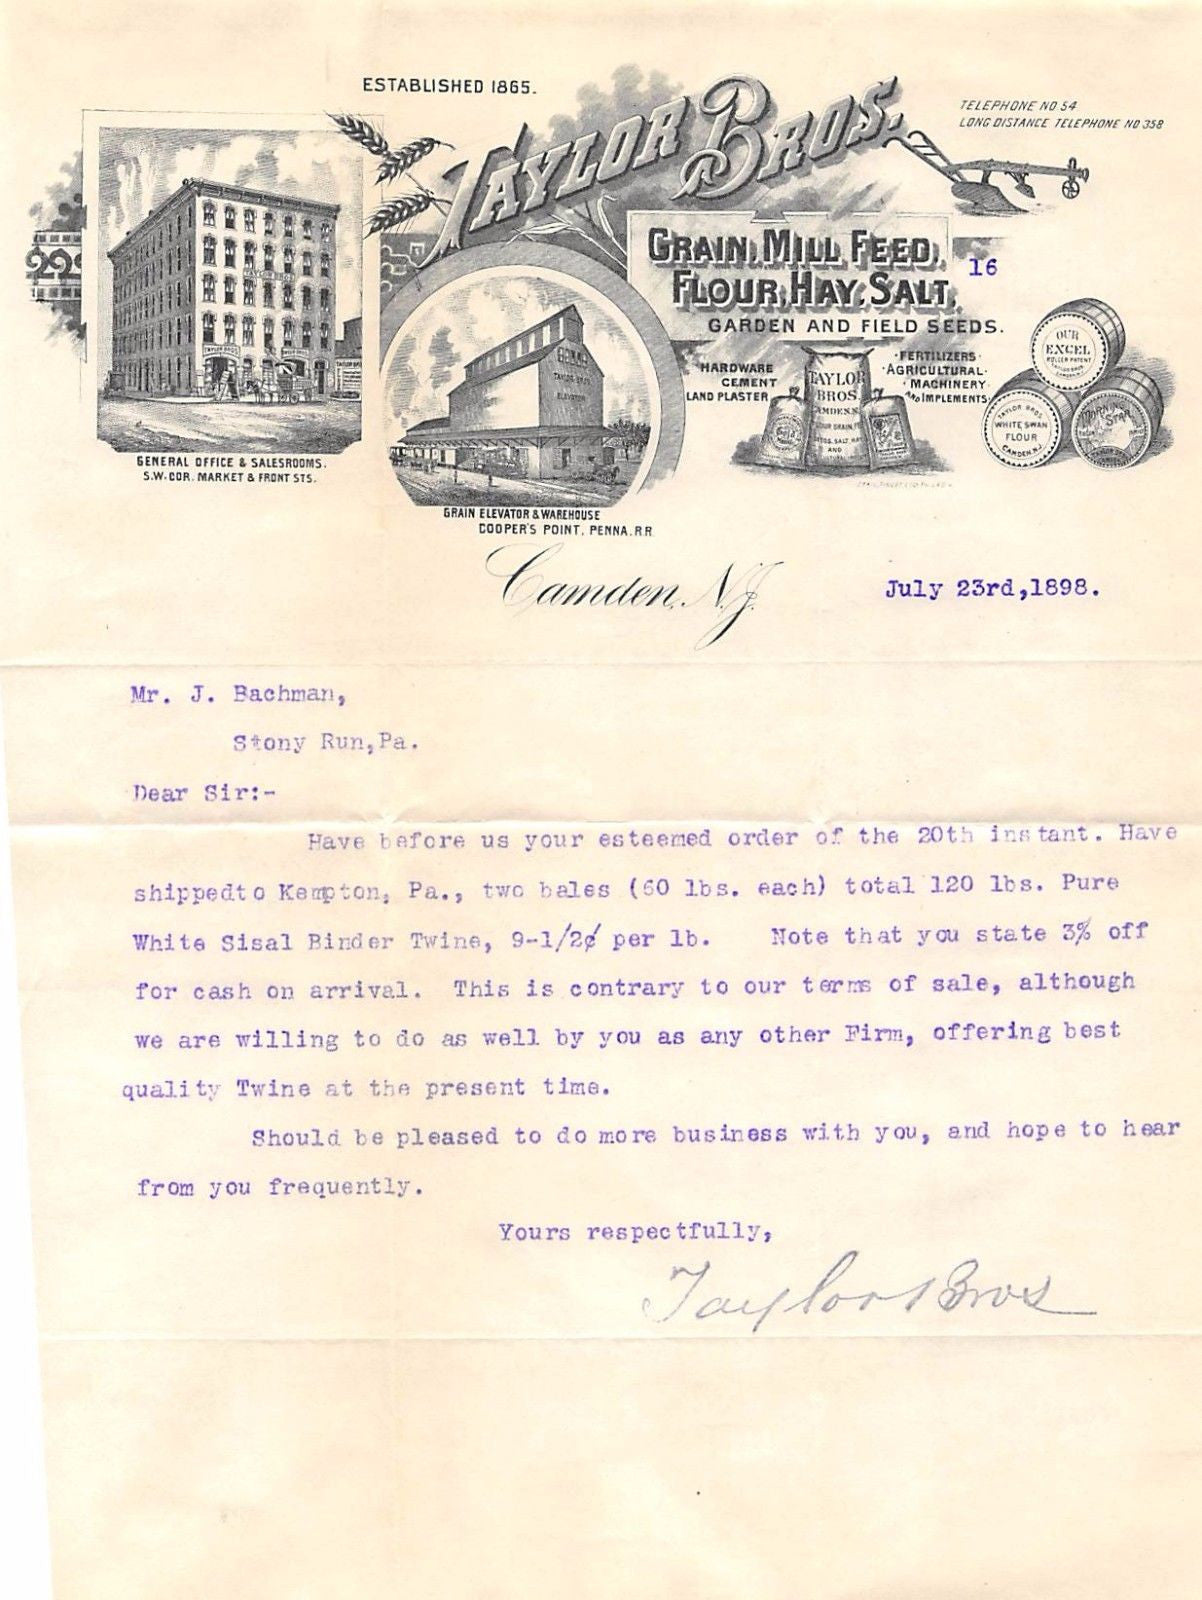 ESTABLISHED 1865.
TAYLOR BROS.
TELEPHONE NO 54
LONG DISTANCE TELEPHONE NO 358
GRAIN, MILL FEED,
FLOUR, HAY, SALT.
16
GARDEN AND FIELD SEEDS.
HARDWARE
CEMENT
LAND PLASTER
FERTILIZERS
AGRICULTURAL
MACHINERY
AND IMPLEMENTS
TAYLOR
BROS.
CAMDEN.
OUR
EXCEL
ROLLER PATENT
TAYLOR BROS.
CAMDEN, N.J.
TAYLOR BROS.
WHITE SWAN
FLOUR
CAMDEN, N.J.
MORNING
STAR
TAYLOR BROS.
TAYLOR BROS.
TAYLOR BROS.
ELEVATOR
GENERAL OFFICE & SALESROOMS.
S.W. COR. MARKET & FRONT STS.
GRAIN ELEVATOR & WAREHOUSE
COOPER'S POINT, PENNA. R.R.
Camden, N.J.
July 23rd,1898.
Mr. J. Bachman,
Stony Run,Pa.
Dear Sir:-
Have before us your esteemed order of the 20th instant. Have
shippedto Kempton, Pa., two bales (60 lbs. each) total 120 lbs. Pure
White Sisal Binder Twine, 9-1/2¢ per lb. Note that you state 3% off
for cash on arrival. This is contrary to our terms of sale, although
we are willing to do as well by you as any other Firm, offering best
quality Twine at the present time.
Should be pleased to do more business with you, and hope to hear
from you frequently.
Yours respectfully,
Taylor Bros